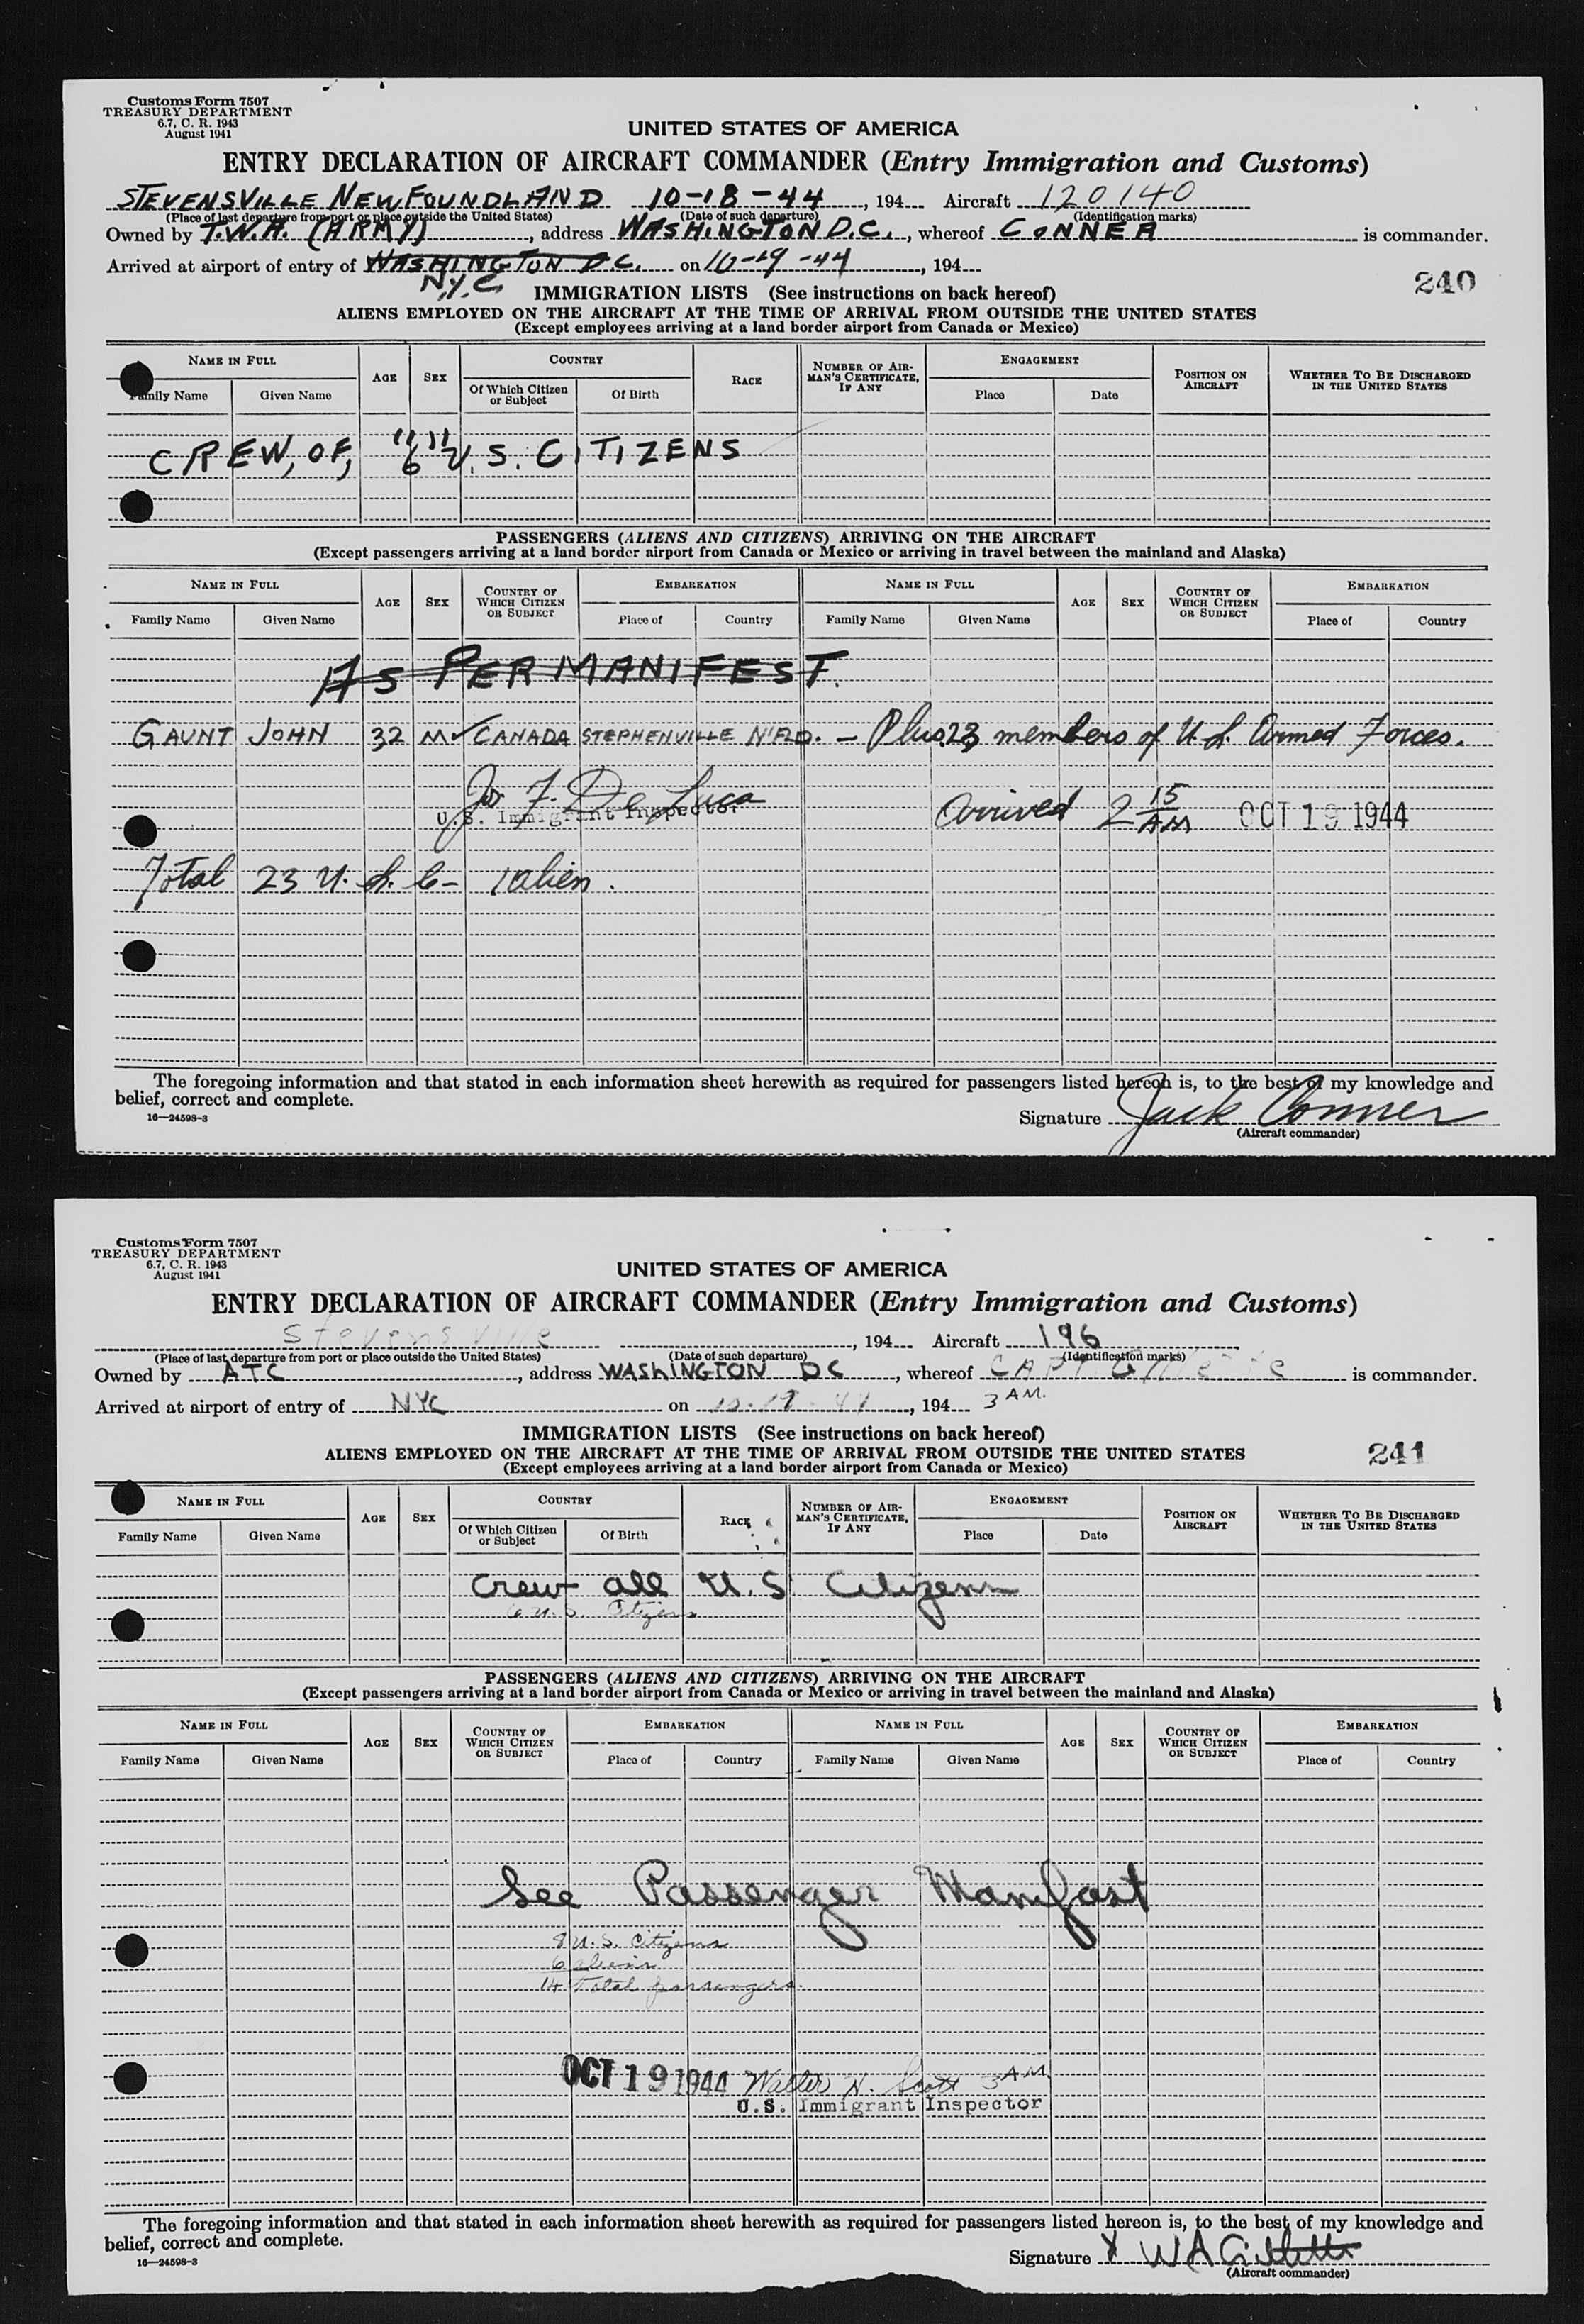 Customs Form 7507
TREASURY DEPARTMENT
6.7, C. R. 1943
August 1941
UNITED STATES OF AMERICA
ENTRY DECLARATION OF AIRCRAFT COMMANDER (Entry Immigration and Customs)
STEVENSVILLE NEWFOUNDLAND 10-18-44, 194 Aircraft 120140
(Place of last departure from port or place outside the United States) (Date of such departure) (Identification marks)
Owned by T.W.A. (ARMY), address WASHINGTON D.C., whereof CONNER is commander.
Arrived at airport of entry of WASHINGTON D.C. on 10-19-44, 194
N.Y.C.
240
IMMIGRATION LISTS (See instructions on back hereof)
ALIENS EMPLOYED ON THE AIRCRAFT AT THE TIME OF ARRIVAL FROM OUTSIDE THE UNITED STATES
(Except employees arriving at a land border airport from Canada or Mexico)
NAME IN FULL AGE SEX COUNTRY RACE NUMBER OF AIRMAN'S CERTIFICATE, IF ANY ENGAGEMENT POSITION ON AIRCRAFT WHETHER TO BE DISCHARGED IN THE UNITED STATES
Family Name Given Name Of Which Citizen or Subject Of Birth Place Date
CREW, OF, "6" U.S. CITIZENS
PASSENGERS (ALIENS AND CITIZENS) ARRIVING ON THE AIRCRAFT
(Except passengers arriving at a land border airport from Canada or Mexico or arriving in travel between the mainland and Alaska)
NAME IN FULL AGE SEX COUNTRY OF WHICH CITIZEN OR SUBJECT EMBARKATION NAME IN FULL AGE SEX COUNTRY OF WHICH CITIZEN OR SUBJECT EMBARKATION
Family Name Given Name Place of Country Family Name Given Name Place of Country
AS PER MANIFEST.
GAUNT JOHN 32 M ✓ CANADA STEPHENVILLE N'FLD. - Plus 23 members of U.S. Armed Forces.
Jos F. De Luca
U.S. Immigrant Inspector
Arrived 2 15 AM OCT 19 1944
Total 23 U.S.C- 1 alien.
The foregoing information and that stated in each information sheet herewith as required for passengers listed hereon is, to the best of my knowledge and
belief, correct and complete.
16—24598-3
Signature Jack Conner
(Aircraft commander)
Customs Form 7507
TREASURY DEPARTMENT
6.7, C. R. 1943
August 1941
UNITED STATES OF AMERICA
ENTRY DECLARATION OF AIRCRAFT COMMANDER (Entry Immigration and Customs)
Stevensville, 194 Aircraft 196
(Place of last departure from port or place outside the United States) (Date of such departure) (Identification marks)
Owned by ATC, address WASHINGTON DC, whereof CAPT. Gillette is commander.
Arrived at airport of entry of NYC on 10-19-44, 194 3 AM.
IMMIGRATION LISTS (See instructions on back hereof)
ALIENS EMPLOYED ON THE AIRCRAFT AT THE TIME OF ARRIVAL FROM OUTSIDE THE UNITED STATES
241
(Except employees arriving at a land border airport from Canada or Mexico)
NAME IN FULL AGE SEX COUNTRY RACE NUMBER OF AIRMAN'S CERTIFICATE, IF ANY ENGAGEMENT POSITION ON AIRCRAFT WHETHER TO BE DISCHARGED IN THE UNITED STATES
Family Name Given Name Of Which Citizen or Subject Of Birth Place Date
Crew all U.S. Citizens
6 U.S. Citizens
PASSENGERS (ALIENS AND CITIZENS) ARRIVING ON THE AIRCRAFT
(Except passengers arriving at a land border airport from Canada or Mexico or arriving in travel between the mainland and Alaska)
NAME IN FULL AGE SEX COUNTRY OF WHICH CITIZEN OR SUBJECT EMBARKATION NAME IN FULL AGE SEX COUNTRY OF WHICH CITIZEN OR SUBJECT EMBARKATION
Family Name Given Name Place of Country Family Name Given Name Place of Country
See Passenger Manifast
8 U.S. Citizens
6 aliens
14 Total passengers.
OCT 19 1944 Walter N. Scott 3 AM.
U.S. Immigrant Inspector
The foregoing information and that stated in each information sheet herewith as required for passengers listed hereon is, to the best of my knowledge and
belief, correct and complete.
16—24598-3
Signature X W A Gillette
(Aircraft commander)